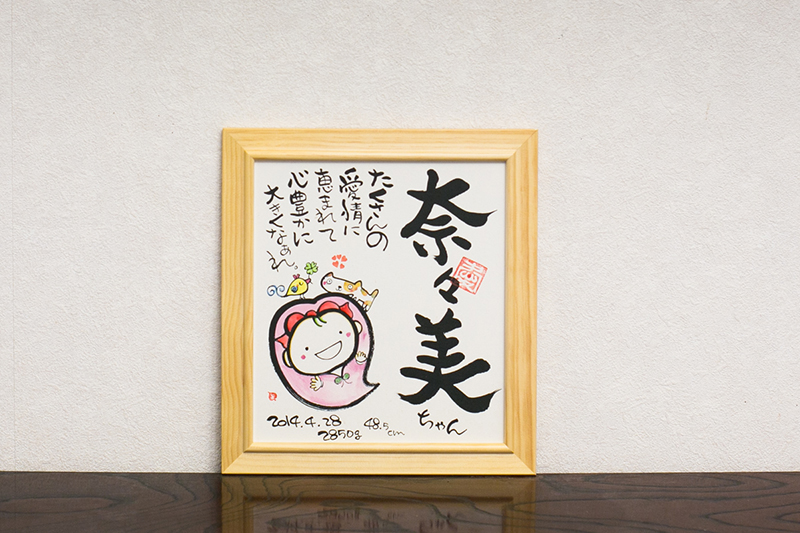 奈々美
ちゃん
たくさんの
愛情に
恵まれて
心豊かに
大きくなぁれ。
2014.4.28
2850g
48.5cm